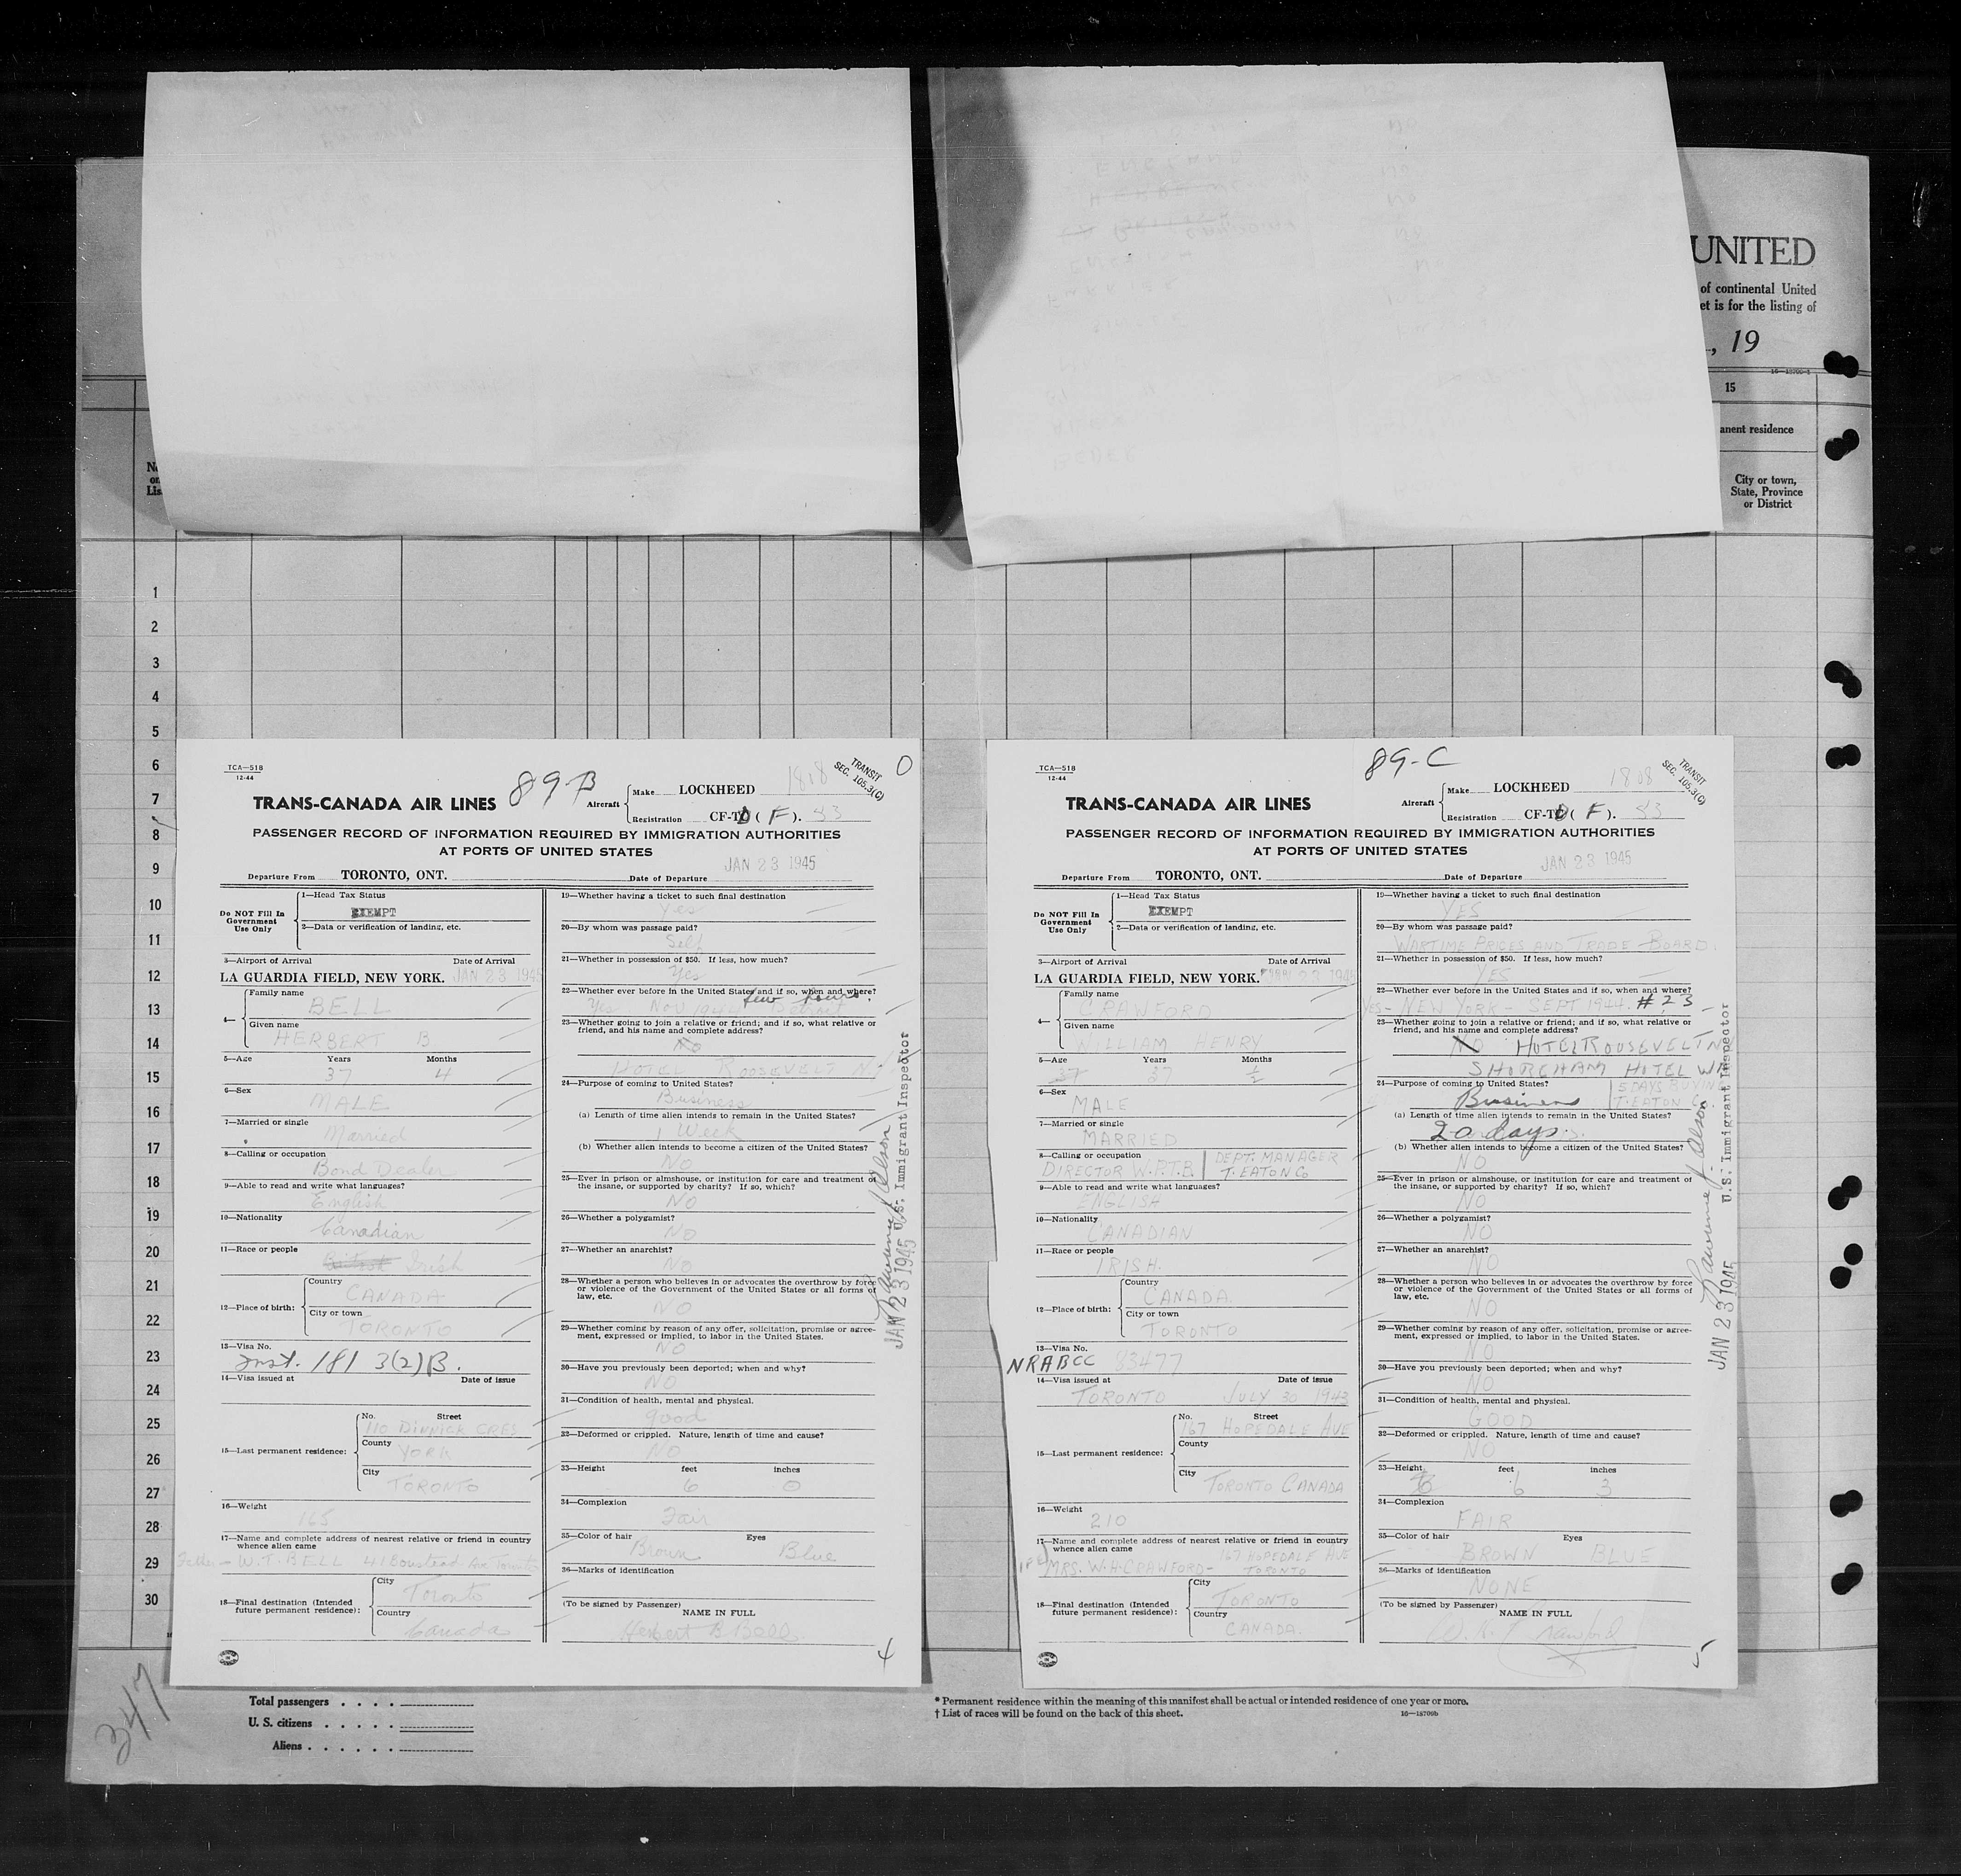 UNITED
of continental United
et is for the listing of
, 19
16-18706-1
15
anent residence
City or town,
State, Province
or District
1
2
3
4
5
6
7
8
9
10
11
12
13
14
15
16
17
18
19
20
21
22
23
24
25
26
27
28
29
30
TCA—518
12-44
89-B
TRANSIT
SEC. 105.3(C)
O
TRANS-CANADA AIR LINES
Aircraft
Make LOCKHEED 1818
Registration CF-T ( F ). 53
PASSENGER RECORD OF INFORMATION REQUIRED BY IMMIGRATION AUTHORITIES
AT PORTS OF UNITED STATES
JAN 23 1945
Departure From TORONTO, ONT. Date of Departure
Do NOT Fill In
Government
Use Only
1—Head Tax Status
EXEMPT
2—Data or verification of landing, etc.
3—Airport of Arrival Date of Arrival
LA GUARDIA FIELD, NEW YORK. JAN 23 1945
4—
Family name
BELL
Given name
HERBERT B
5—Age Years Months
37 4
6—Sex
MALE
7—Married or single
Married
8—Calling or occupation
Bond Dealer
9—Able to read and write what languages?
English
10—Nationality
Canadian
11—Race or people
British Irish
12—Place of birth:
Country
CANADA
City or town
TORONTO
13—Visa No.
Inst. 181 3(2)B.
14—Visa issued at Date of issue
15—Last permanent residence:
No. Street
110 DINNICK CRES
County
YORK
City
TORONTO
16—Weight
165
17—Name and complete address of nearest relative or friend in country
whence alien came
Father — W.T. BELL 41 Boustead Ave Toronto
18—Final destination (Intended
future permanent residence):
City
Toronto
Country
Canada
19—Whether having a ticket to such final destination
Yes
20—By whom was passage paid?
Self
21—Whether in possession of $50. If less, how much?
Yes
22—Whether ever before in the United States and if so, when and where?
few hours.
Yes Nov 1944 Detroit
23—Whether going to join a relative or friend; and if so, what relative or
friend, and his name and complete address?
No
HOTEL ROOSEVELT N.Y.
24—Purpose of coming to United States?
Business
(a) Length of time alien intends to remain in the United States?
1 Week
(b) Whether alien intends to become a citizen of the United States?
NO
25—Ever in prison or almshouse, or institution for care and treatment of
the insane, or supported by charity? If so, which?
NO
26—Whether a polygamist?
NO
27—Whether an anarchist?
NO
28—Whether a person who believes in or advocates the overthrow by force
or violence of the Government of the United States or all forms of
law, etc.
NO
29—Whether coming by reason of any offer, solicitation, promise or agree-
ment, expressed or implied, to labor in the United States.
NO
30—Have you previously been deported; when and why?
NO
31—Condition of health, mental and physical.
good
32—Deformed or crippled. Nature, length of time and cause?
NO
33—Height feet inches
6 0
34—Complexion
Fair
35—Color of hair Eyes
Brown Blue
36—Marks of identification
(To be signed by Passenger)
NAME IN FULL
Herbert B. Bell
4
JAN 23 1945 U.S. Immigrant Inspector
TCA—518
12-44
89-C
TRANSIT
SEC. 105.3(C)
TRANS-CANADA AIR LINES
Aircraft
Make LOCKHEED 1808
Registration CF-T ( F ). 53
PASSENGER RECORD OF INFORMATION REQUIRED BY IMMIGRATION AUTHORITIES
AT PORTS OF UNITED STATES
JAN 23 1945
Departure From TORONTO, ONT. Date of Departure
Do NOT Fill In
Government
Use Only
1—Head Tax Status
EXEMPT
2—Data or verification of landing, etc.
3—Airport of Arrival Date of Arrival
LA GUARDIA FIELD, NEW YORK. 23 1945
4—
Family name
CRAWFORD
Given name
WILLIAM HENRY
5—Age Years Months
37 37 ½
6—Sex
MALE
7—Married or single
MARRIED
8—Calling or occupation
DIRECTOR W.P.T.B. DEPT. MANAGER
T. EATON Co
9—Able to read and write what languages?
ENGLISH
10—Nationality
CANADIAN
11—Race or people
IRISH.
12—Place of birth:
Country
CANADA.
City or town
TORONTO
13—Visa No.
NRABCC 83477
14—Visa issued at Date of issue
TORONTO JULY 30 1943
15—Last permanent residence:
No. Street
167 HOPEDALE AVE
County
City
TORONTO CANADA
16—Weight
210
17—Name and complete address of nearest relative or friend in country
whence alien came
167 HOPEDALE AVE
MRS. W.H. CRAWFORD- TORONTO
18—Final destination (Intended
future permanent residence):
City
TORONTO
Country
CANADA.
19—Whether having a ticket to such final destination
YES
20—By whom was passage paid?
WARTIME PRICES AND TRADE BOARD.
21—Whether in possession of $50. If less, how much?
YES
22—Whether ever before in the United States and if so, when and where?
Yes- NEW YORK - SEPT 1944. #23
23—Whether going to join a relative or friend; and if so, what relative or
friend, and his name and complete address?
NO HOTEL ROOSEVELT N
SHOREHAM HOTEL WA
24—Purpose of coming to United States?
Business
5 DAYS BUYING
T. EATON C
(a) Length of time alien intends to remain in the United States?
20 days.
(b) Whether alien intends to become a citizen of the United States?
NO
25—Ever in prison or almshouse, or institution for care and treatment of
the insane, or supported by charity? If so, which?
NO
26—Whether a polygamist?
NO
27—Whether an anarchist?
NO
28—Whether a person who believes in or advocates the overthrow by force
or violence of the Government of the United States or all forms of
law, etc.
NO
29—Whether coming by reason of any offer, solicitation, promise or agree-
ment, expressed or implied, to labor in the United States.
NO
30—Have you previously been deported; when and why?
NO
31—Condition of health, mental and physical.
GOOD
32—Deformed or crippled. Nature, length of time and cause?
NO
33—Height feet inches
6 3
34—Complexion
FAIR
35—Color of hair Eyes
BROWN BLUE
36—Marks of identification
NONE
(To be signed by Passenger)
NAME IN FULL
W. H. Crawford
5
JAN 23 1945 U.S. Immigrant Inspector
347
Total passengers
U. S. citizens
Aliens
* Permanent residence within the meaning of this manifest shall be actual or intended residence of one year or more.
† List of races will be found on the back of this sheet.
16—18706b